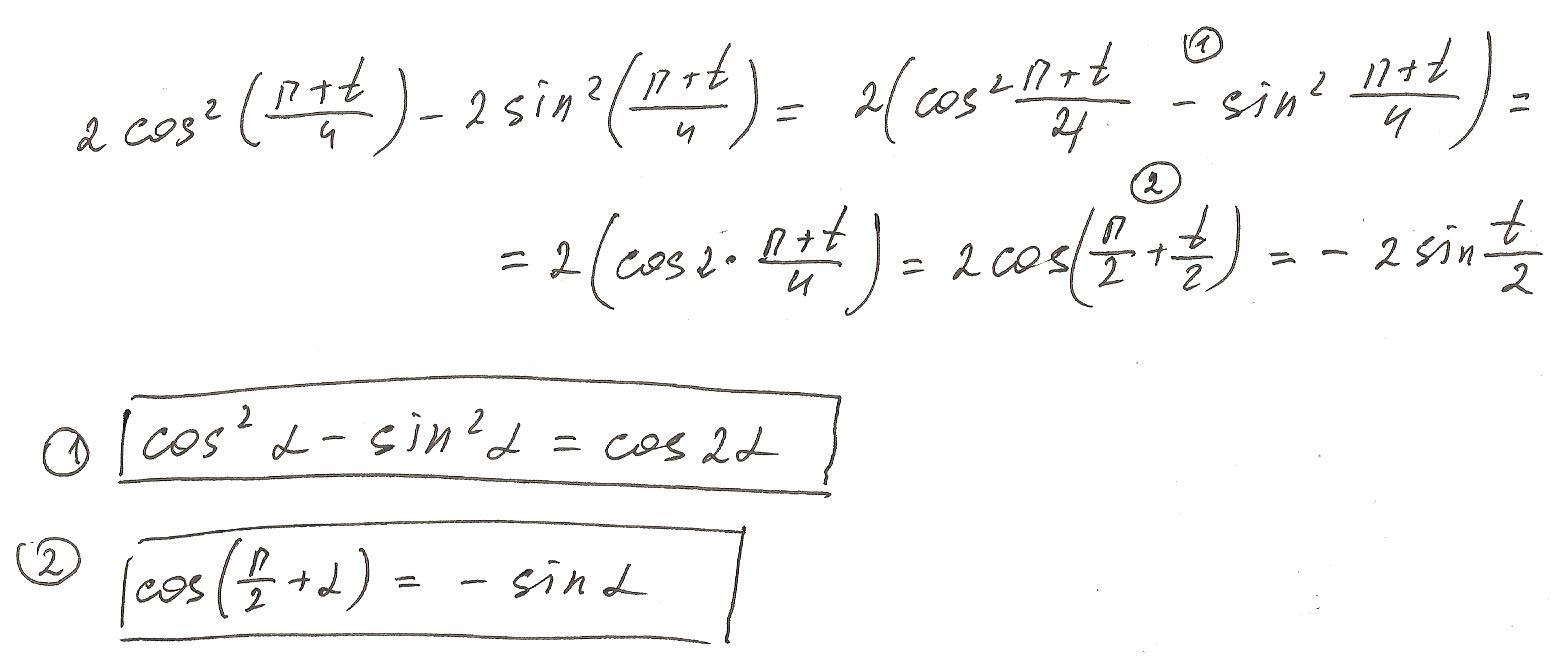 2 cos² (π+t/4) - 2 sin² (π+t/4) = 2(cos² π+t/4 ① - sin² π+t/4) =
= 2(cos 2· π+t/4) = 2 cos(π/2 + t/2) ② = - 2 sin t/2
① cos² α - sin² α = cos 2α
② cos(π/2 + α) = - sin α